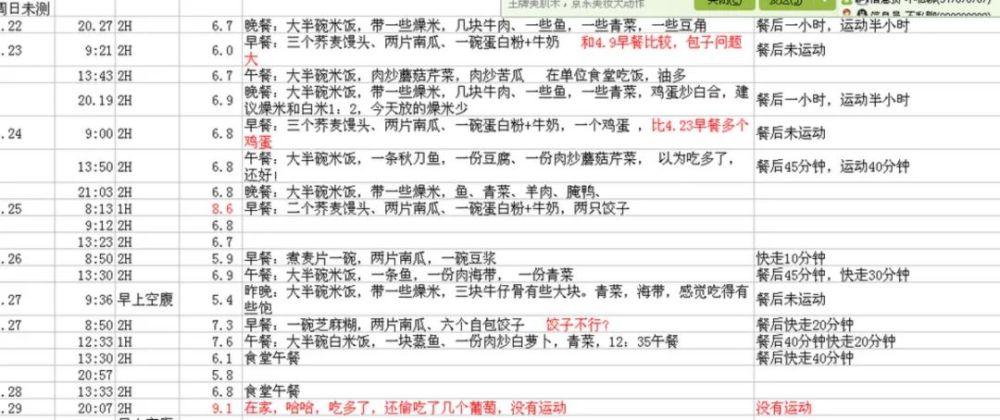 周日未测
.22 20.27 2H 6.7 晚餐：大半碗米饭，带一些燥米，几块牛肉、一些鱼，一些青菜，一些豆角 餐后一小时，运动半小时
.23 9:21 2H 6.0 早餐：三个荞麦馒头、两片南瓜、一碗蛋白粉+牛奶 和4.9早餐比较，包子问题
大 餐后未运动
13:43 2H 6.7 午餐：大半碗米饭，肉炒蘑菇芹菜，肉炒苦瓜 在单位食堂吃饭，油多
20.19 2H 6.9 晚餐：大半碗米饭，带一些燥米，几块牛肉、一些鱼，一些青菜，鸡蛋炒白合，建
议燥米和白米1：2，今天放的燥米少 餐后一小时，运动半小时
.24 9:00 2H 6.8 早餐：三个荞麦馒头、两片南瓜、一碗蛋白粉+牛奶，一个鸡蛋 ，比4.23早餐多个
鸡蛋 餐后未运动
13:50 2H 6.8 午餐：大半碗米饭，一条秋刀鱼，一份豆腐、一份肉炒蘑菇芹菜， 以为吃多了，
还好！ 餐后45分钟，运动40分钟
21:03 2H 6.8 晚餐：大半碗米饭，带一些燥米，鱼、青菜、羊肉、腌鸭、
.25 8:13 1H 8.6 早餐：二个荞麦馒头、两片南瓜、一碗蛋白粉+牛奶，两只饺子
9:12 2H 6.8
13:23 2H 6.7
.26 8:50 2H 5.9 早餐：煮麦片一碗，两片南瓜，一碗豆浆 快走10分钟
13:30 2H 6.9 午餐：大半碗米饭，一条鱼，一份肉海带， 一份青菜 餐后45分钟，快走30分钟
.27 9:36 早上空腹 5.4 昨晚：大半碗米饭，带一些燥米，三块牛仔骨有些大块。青菜，海带，感觉吃得有
些饱 餐后未运动
.27 8:50 2H 7.3 早餐：一碗芝麻糊，两片南瓜、六个自包饺子 饺子不行? 餐后快走20分钟
12:33 1H 7.6 午餐：大半碗白米饭，一块蒸鱼、一份肉炒白萝卜，青菜，12：35午餐 餐后40分钟快走20分钟
13:30 2H 6.1 食堂午餐 餐后快走40分钟
20:57 5.8
.28 13:33 2H 6.8 食堂午餐
.29 20:07 2H 9.1 在家，哈哈，吃多了，还偷吃了几个葡萄，没有运动 没有运动